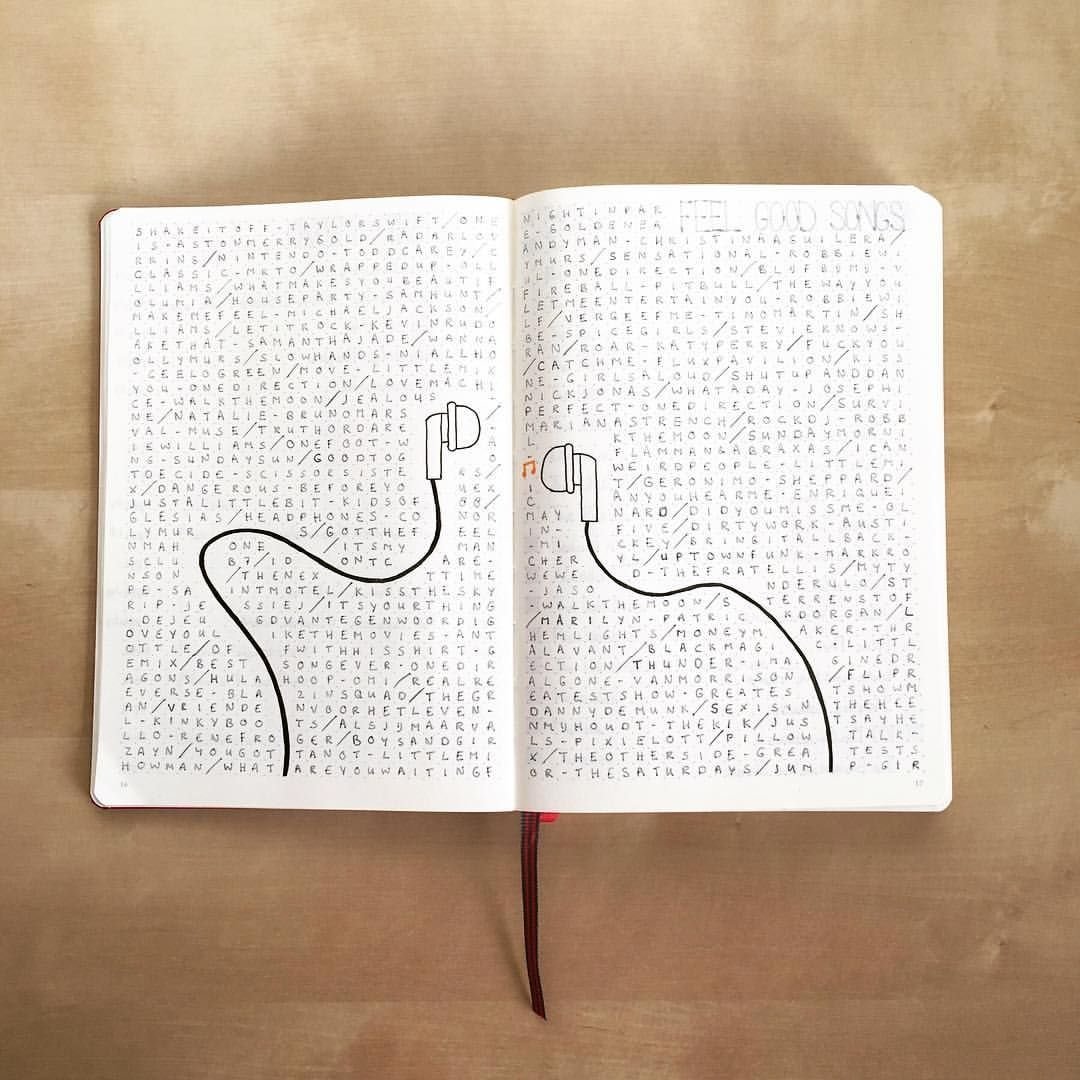 FEEL GOOD SONGS
SHAKEITOFF-TAYLORSWIFT/ONE NIGHTINPAR
IS-ASTONMERRYGOLD/RADARLOV E-GOLDENEA
RRING/NINTENDO-TODDCAREY/C ANDYMAN-CHRISTINAAGUILERA/
CLASSIC-MKTO/WRAPPEDUP-OLL YMURS/SENSATIONAL-ROBBIEWI
LLIAMS/WHATMAKESYOUBEAUTIF UL-ONEDIRECTION/BLIJFBIJMIJ-V
OLUMIA/HOUSEPARTY-SAMHUNT/ FIREBALL-PITBULL/THEWAYYOU
MAKEMEFEEL-MICHAELJACKSON/ LETMEENTERTAINYOU-ROBBIEWI
LLIAMS/LETITROCK-KEVINRUDO LF/VERGEEFME-TINOMARTIN/SH
AKETHAT-SAMANTHAJADE/WANNA BE-SPICEGIRLS/STEVIEKNOWS-
OLLYMURS/SLOWHANDS-NIALLHO RAN/ROAR-KATYPERRY/FUCKYOU
-CEELOGREEN/MOVE-LITTLEMIX /CATCHME-FLUXPAVILION/KISS
YOU-ONEDIRECTION/LOVEMACHI NE-GIRLSALOUD/SHUTUPANDDAN
CE-WALKTHEMOON/JEALOUS - NICKJONAS/WHATADAY-JOSEPHI
NE/NATALIE-BRUNOMARS / PERFECT-ONEDIRECTION/SURVI
VAL-MUSE/TRUTHORDARE - MARIANASTRENCH/ROCKDJ-ROBB
IEWILLIAMS/ONEFOOT-W A L KTHEMOON/SUNDAYMORNI
NG-SUNDAYSUN/GOODTOG O - FLAMMANGABRAXAS/
TODECIDE-SCISSORSISTE RS/ WEIRDPEOPLE-LITTLEMI
X/DANGEROUS-BEFOREYO UEX I T/GERONIMO-SHEPPARD/
JUSTALITTLEBIT-KIDSOF 88/ C ANYOUHEARME-ENRIQUEI
GLESIAS/HEADPHONES-CO NOR MAY NARD/DIDYOUMISSME-OL
LYMUR S/GOTTHEF EEL IN- FIVE/DIRTYWORK-AUSTI
NMAH ONE /ITSMY MAN -MI CKEY/BRINGITALLBACK-
SCLU B7/ID ONTC ARE- CHER YL/UPTOWNFUNK-MARKRO
NSON /THENEX TTIME WEWE D-THEFRATELLIS/MYTY
PE-SA INTMOTEL/KISSTHESKY -JASO NDERULO/ST
RIP-JE SSIEJ/ITSYOURTHING -WALKTHEMOON/S TERRENSTOF
-DEJEU GDVANTEGENWOORDIG /MARILYN-PATRIC KDORGAN/L
OVEYOUL IKETHEMOVIES-ANT HEMLIGHTS/MONEYM AKER-THR
OTTLE/OF FWITHHISSHIRTG ALAVANT/BLACKMAGI C-LITTL
EMIX/BEST SONGEVER-ONEDIR ECTION/THUNDER-IMA GINEDR
AGONS/HULA HOOP-OMI/REALRE ALGONE-VANMORRISON /FLIPR
EVERSE-BLA ZINSQUAD/THEGR EATESTSHOW-GREATES TSHOWM
AN/VRIENDE NVOORHETLEVEN- DANNYDEMUNK/SEXISIN THEHEE
L-KINKYBOO TS/ALSJIJMAARVA NMIJHOUDT-THEKIK/JUS TSAYHE
LLO-RENEFRO GER/BOYSANDGIR LS-PIXIELOTT/PILLOW TALK-
ZAYN/4OUGOT TANOT-LITTLEMI X/THEOTHERSIDE-GREA TESTS
HOWMAN/WHAT AREYOUWAITINGF OR-THESATURDAYS/JUM P-GIR
16
17